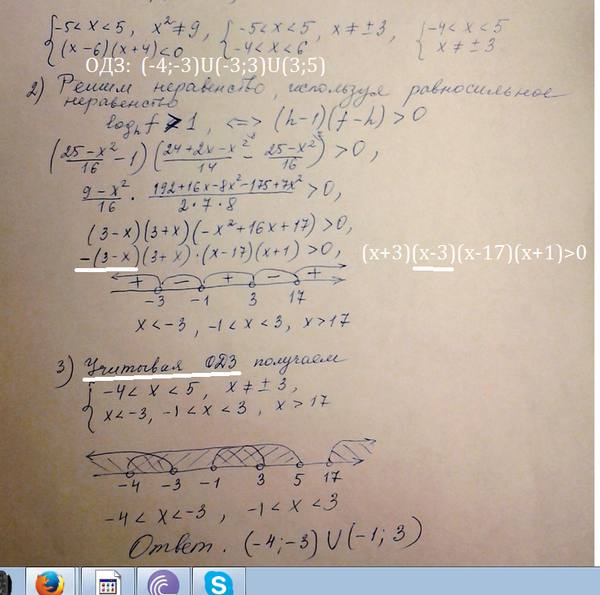 {-5<x<5, x²≠9, {-5<x<5, x≠±3, {-4<x<5
(x-6)(x+4)<0 -4<x<6 x≠±3
ОДЗ: (-4;-3)U(-3;3)U(3;5)
2) Решим неравенство, используя равносильное
неравенство
logₕf > 1, <=> (h-1)(f-h)>0
((25-x²)/16 - 1)((24+2x-x²)/14 - (25-x²)/16)>0,
(9-x²)/16 · (192+16x-8x²-175+7x²)/(2·7·8)>0,
(3-x)(3+x)(-x²+16x+17)>0,
-(3-x)(3+x)·(x-17)(x+1)>0, (x+3)(x-3)(x-17)(x+1)>0
+ - + - +
-3 -1 3 17
x<-3, -1<x<3, x>17
3) Учитывая ОДЗ получаем
{-4<x<5, x≠±3,
x<-3, -1<x<3, x>17
-4 -3 -1 3 5 17
-4<x<-3, -1<x<3
Ответ. (-4;-3)U(-1;3)